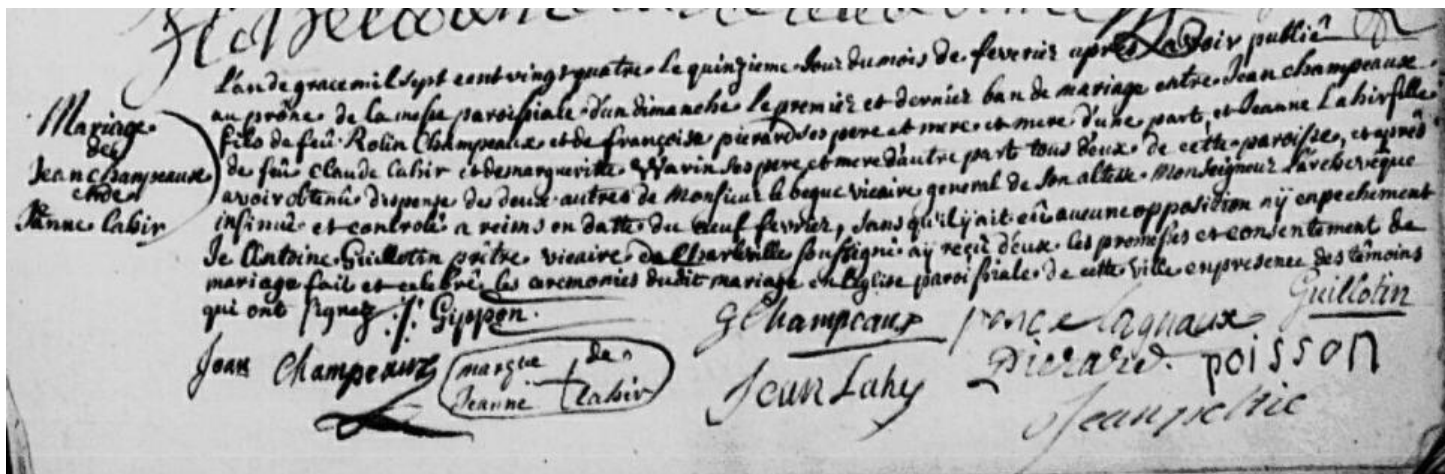 L'an de grace mil sept cent vingt quatre le quinzieme jour du mois de feverier après avoir publiê
au prône de la messe paroissiale d'un dimanche le premier et dernier ban de mariage entre Jean champeaux
fils de feû Rolin Champeaux et de françoise pierard ses pere et mere et mere d'une part, et Jeanne Lahir fille
de feû claude Lahir et de margueritte Warin ses pere et mere d'autre part tous deux de cette paroisse, et après
avoir obtenû dispense des deux autres de Monsieur le begue vicaire general de son altesse Monseigneur L'archevêque
insinuê et controlê a reims en datte du neuf fevrier, sans qu'il y ait eû aucune opposition nÿ enpechement
Je Antoine Guillotin prêtre vicaire de Charleville soussignê aÿ reçû d'eux les promesses et consentement de
mariage fait et celebrê les ceremonies dudit mariage en l'eglise paroissiale de cette ville en presence des têmoins
qui ont signez
Mariage
de
Jean champeaux
et de
Janne Lahir
J: Gippon
G Champeaux
ponce lagnaux
Guillotin
Jean Champeaux
marque de
Jeanne + Lahir
Jean Lahy
Pierard
poisson
Jean